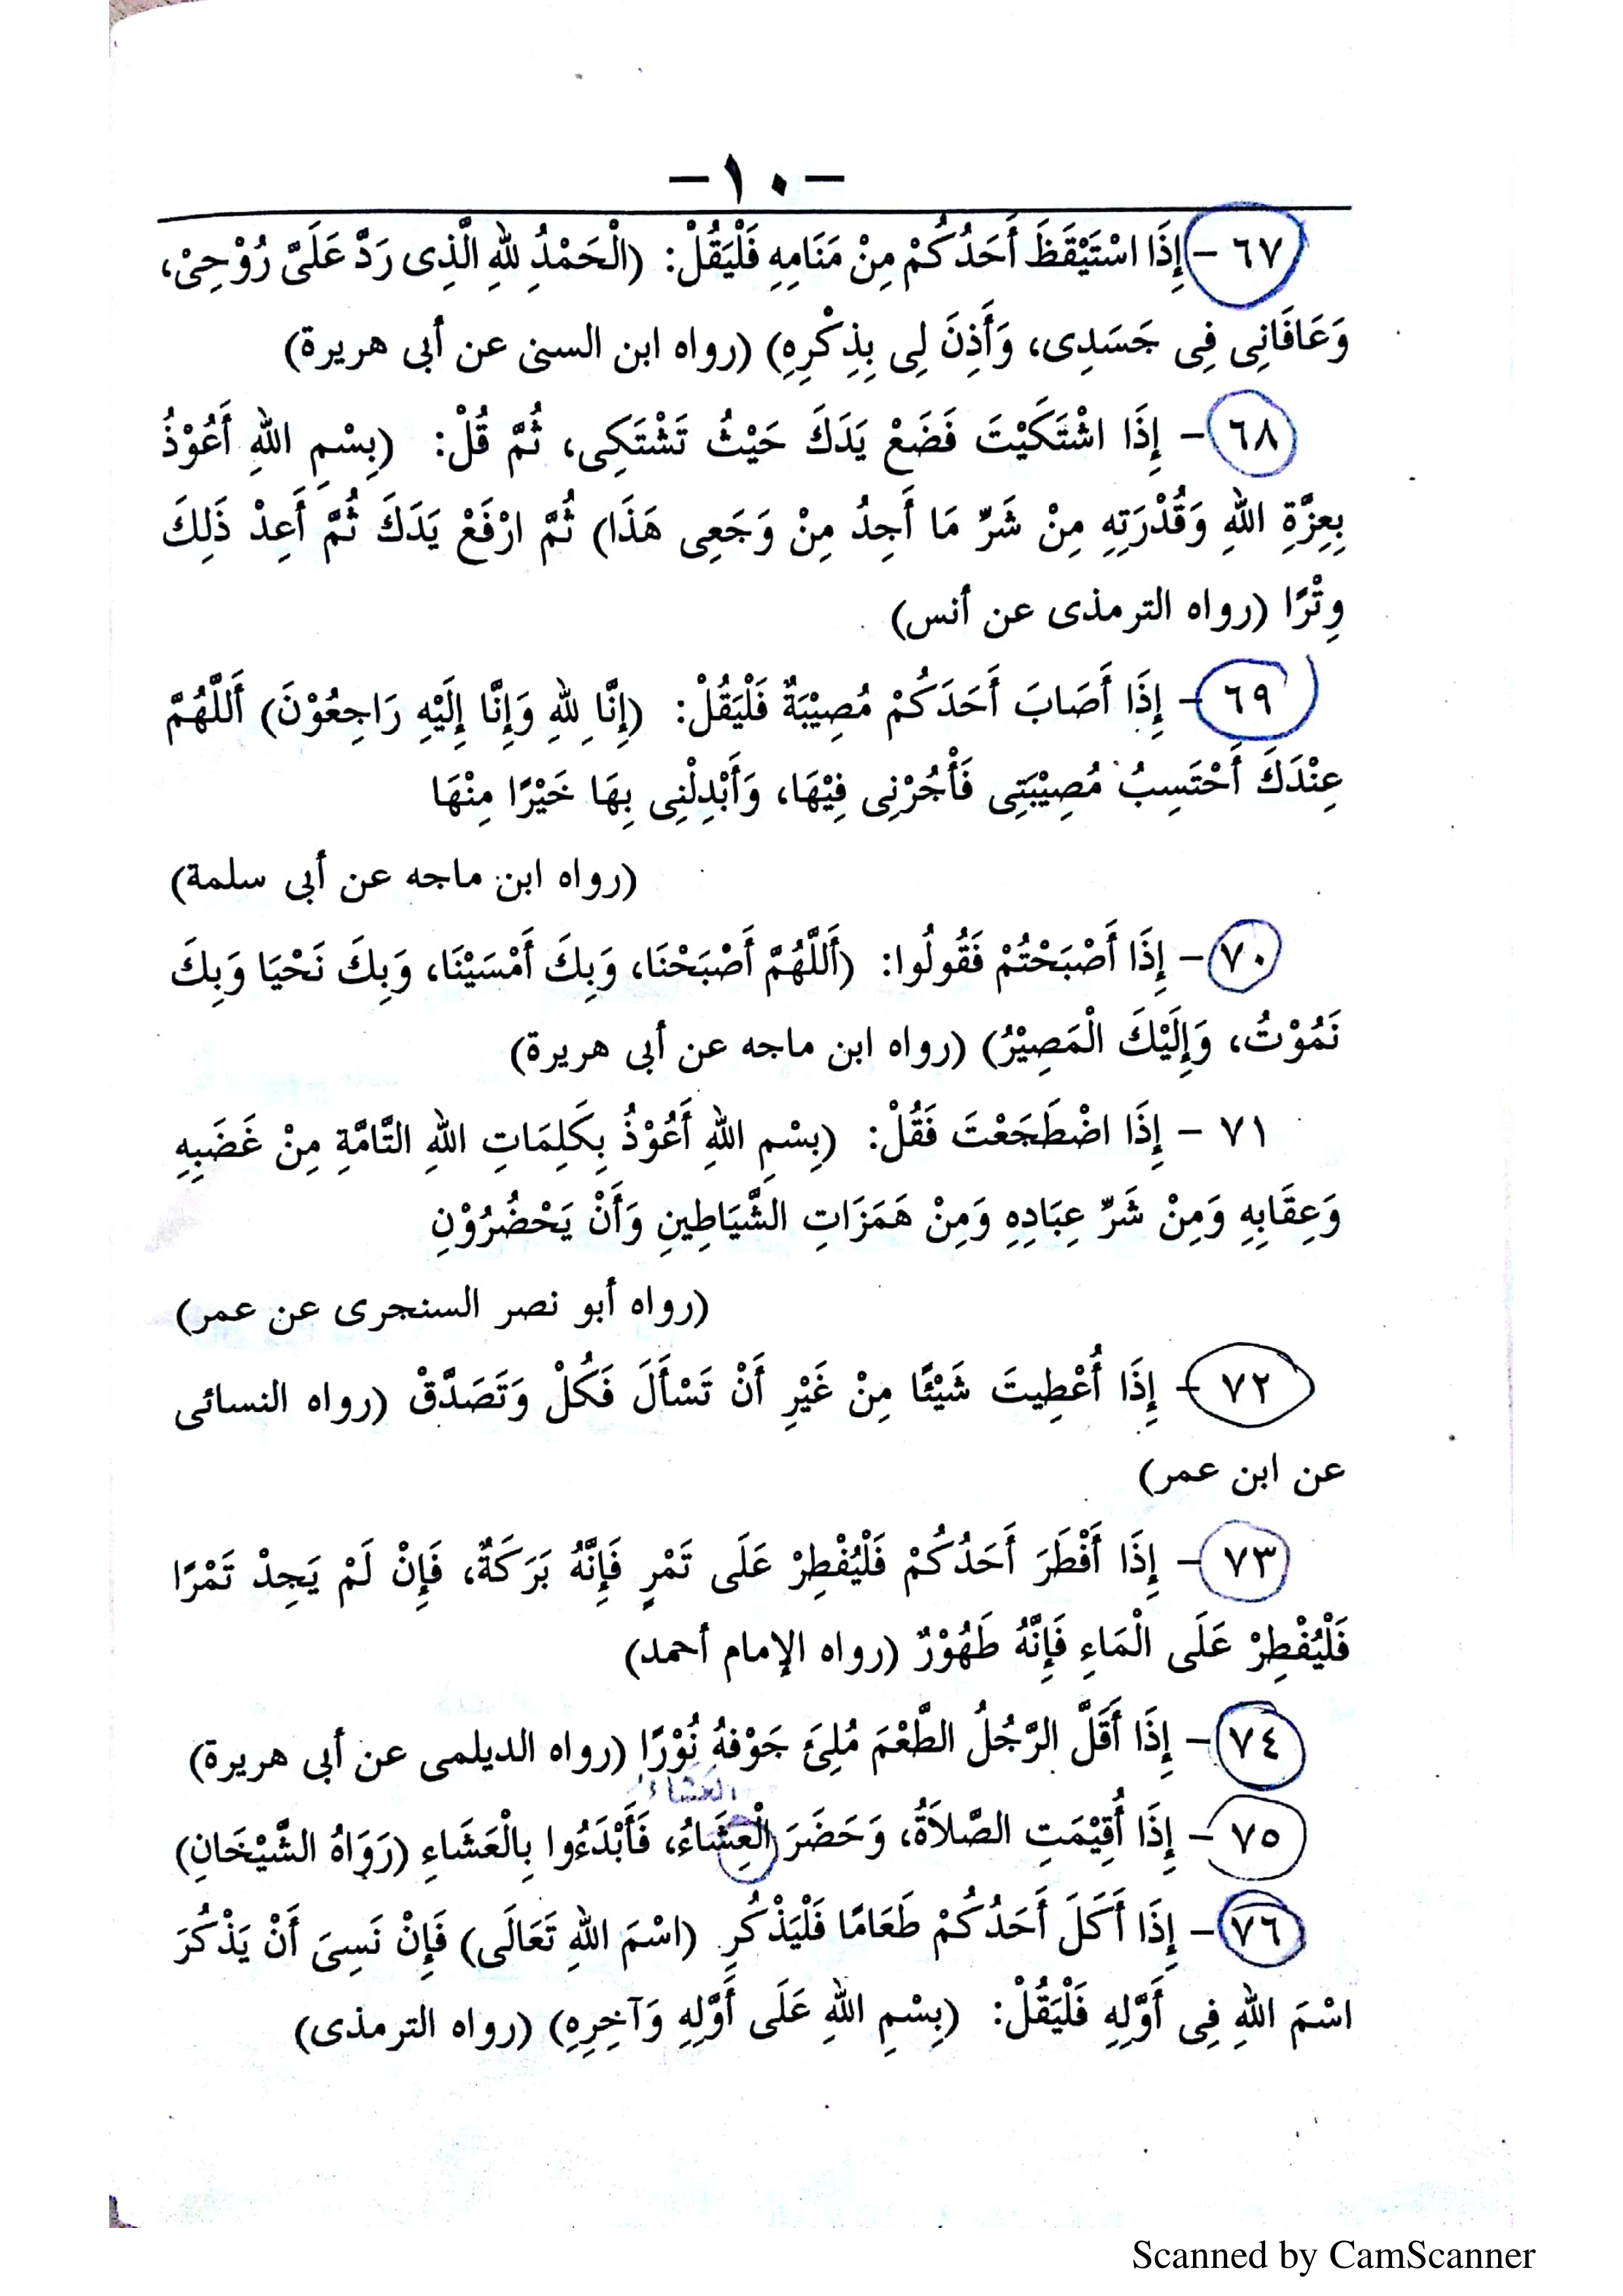 - ١٠ -
٦٧ - إِذَا اسْتَيْقَظَ أَحَدُكُمْ مِنْ مَنَامِهِ فَلْيَقُلْ: (الْحَمْدُ لِلّٰهِ الَّذِى رَدَّ عَلَىَّ رُوْحِىْ،
وَعَافَانِى فِى جَسَدِى، وَأَذِنَ لِى بِذِكْرِهِ) (رواه ابن السنى عن أبى هريرة)
٦٨ - إِذَا اشْتَكَيْتَ فَضَعْ يَدَكَ حَيْثُ تَشْتَكِى، ثُمَّ قُلْ: (بِسْمِ اللهِ أَعُوْذُ
بِعِزَّةِ اللهِ وَقُدْرَتِهِ مِنْ شَرِّ مَا أَجِدُ مِنْ وَجَعِى هَذَا) ثُمَّ ارْفَعْ يَدَكَ ثُمَّ أَعِدْ ذَلِكَ
وِتْرًا (رواه الترمذى عن أنس)
٦٩ - إِذَا أَصَابَ أَحَدَكُمْ مُصِيْبَةٌ فَلْيَقُلْ: (إِنَّا لِلّٰهِ وَإِنَّا إِلَيْهِ رَاجِعُوْنَ) أَللَّهُمَّ
عِنْدَكَ أَحْتَسِبُ مُصِيْبَتِى فَأْجُرْنِى فِيْهَا، وَأَبْدِلْنِى بِهَا خَيْرًا مِنْهَا
(رواه ابن ماجه عن أبى سلمة)
٧٠ - إِذَا أَصْبَحْتُمْ فَقُولُوا: (أَللَّهُمَّ أَصْبَحْنَا، وَبِكَ أَمْسَيْنَا، وَبِكَ نَحْيَا وَبِكَ
نَمُوْتُ، وَإِلَيْكَ الْمَصِيْرُ) (رواه ابن ماجه عن أبى هريرة)
٧١ - إِذَا اضْطَجَعْتَ فَقُلْ: (بِسْمِ اللهِ أَعُوْذُ بِكَلِمَاتِ اللهِ التَّامَّةِ مِنْ غَضَبِهِ
وَعِقَابِهِ وَمِنْ شَرِّ عِبَادِهِ وَمِنْ هَمَزَاتِ الشَّيَاطِينِ وَأَنْ يَحْضُرُوْنِ
(رواه أبو نصر السنجرى عن عمر)
٧٢ - إِذَا أُعْطِيتَ شَيْئًا مِنْ غَيْرِ أَنْ تَسْأَلَ فَكُلْ وَتَصَدَّقْ (رواه النسائى
عن ابن عمر)
٧٣ - إِذَا أَفْطَرَ أَحَدُكُمْ فَلْيُفْطِرْ عَلَى تَمْرٍ فَإِنَّهُ بَرَكَةٌ، فَإِنْ لَمْ يَجِدْ تَمْرًا
فَلْيُفْطِرْ عَلَى الْمَاءِ فَإِنَّهُ طَهُوْرٌ (رواه الإمام أحمد)
٧٤ - إِذَا أَقَلَّ الرَّجُلُ الطَّعْمَ مُلِئَ جَوْفهُ نُوْرًا (رواه الديلمى عن أبى هريرة)
العَشَاءُ
٧٥ - إِذَا أُقِيْمَتِ الصَّلاَةُ، وَحَضَرَ الْعِشَاءُ، فَأَبْدَءُوا بِالْعَشَاءِ (رَوَاهُ الشَّيْخَانِ)
٧٦ - إِذَا أَكَلَ أَحَدُكُمْ طَعَامًا فَلْيَذْكُرِ (اسْمَ اللهِ تَعَالَى) فَإِنْ نَسِىَ أَنْ يَذْكُرَ
اسْمَ اللهِ فِى أَوَّلِهِ فَلْيَقُلْ: (بِسْمِ اللهِ عَلَى أَوَّلِهِ وَآخِرِهِ) (رواه الترمذى)
Scanned by CamScanner